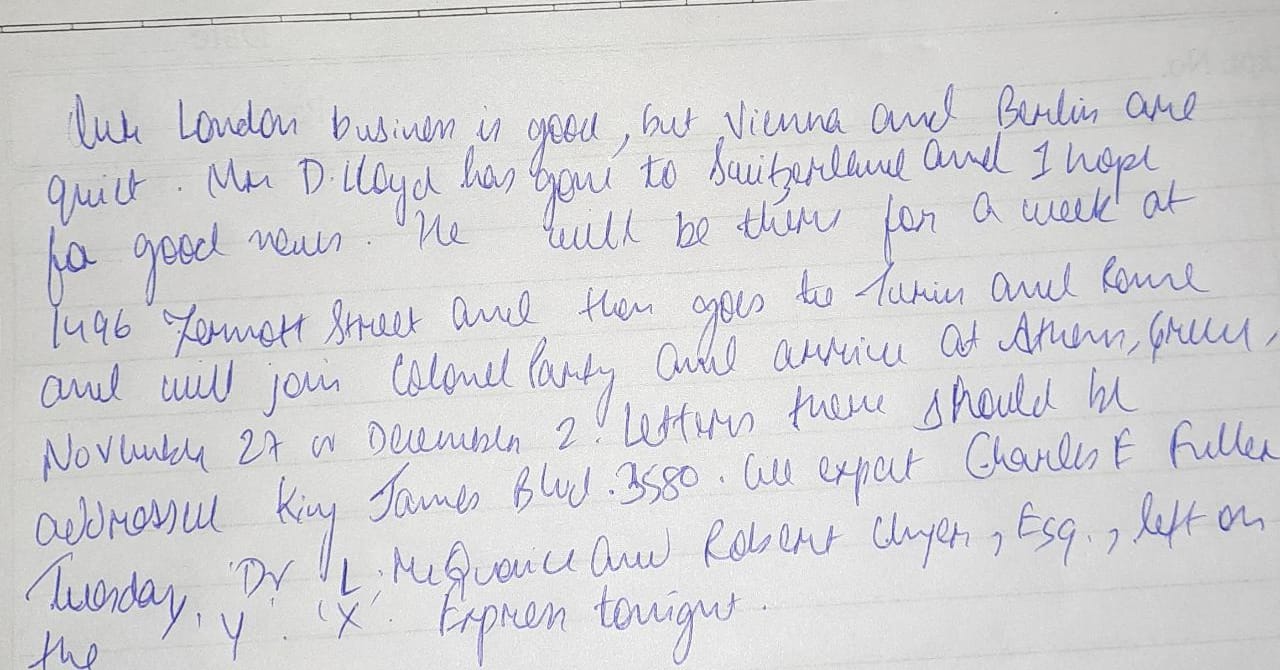 Our London business is good, but Vienna and Berlin are
quiet. Mr. D. Lloyd has gone to Switzerland and I hope
for good news. He will be there for a week at
1496 Zermott Street and then goes to Turin and Rome
and will join Colonel Parry and arrive at Athens, Greece,
November 27 or December 2. Letters there should be
addressed King James Blvd. 3580. We expect Charles E Fuller
Tuesday. Dr L. McQuaid and Robert Unger, Esq., left on
the 'Y. X' Express tonight.